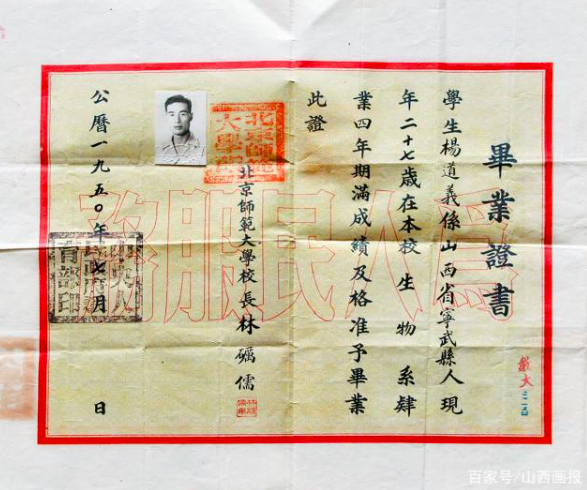 畢業證書
學生楊道義係山西省寧武縣人現
年二十七歲在本校生物系肄
業四年期滿成績及格准予畢業
此證
北京師範大學校長林礪儒
公曆一九五〇年七月 日
為人民服務
北京師範
大學
教大
百家号/山西画报